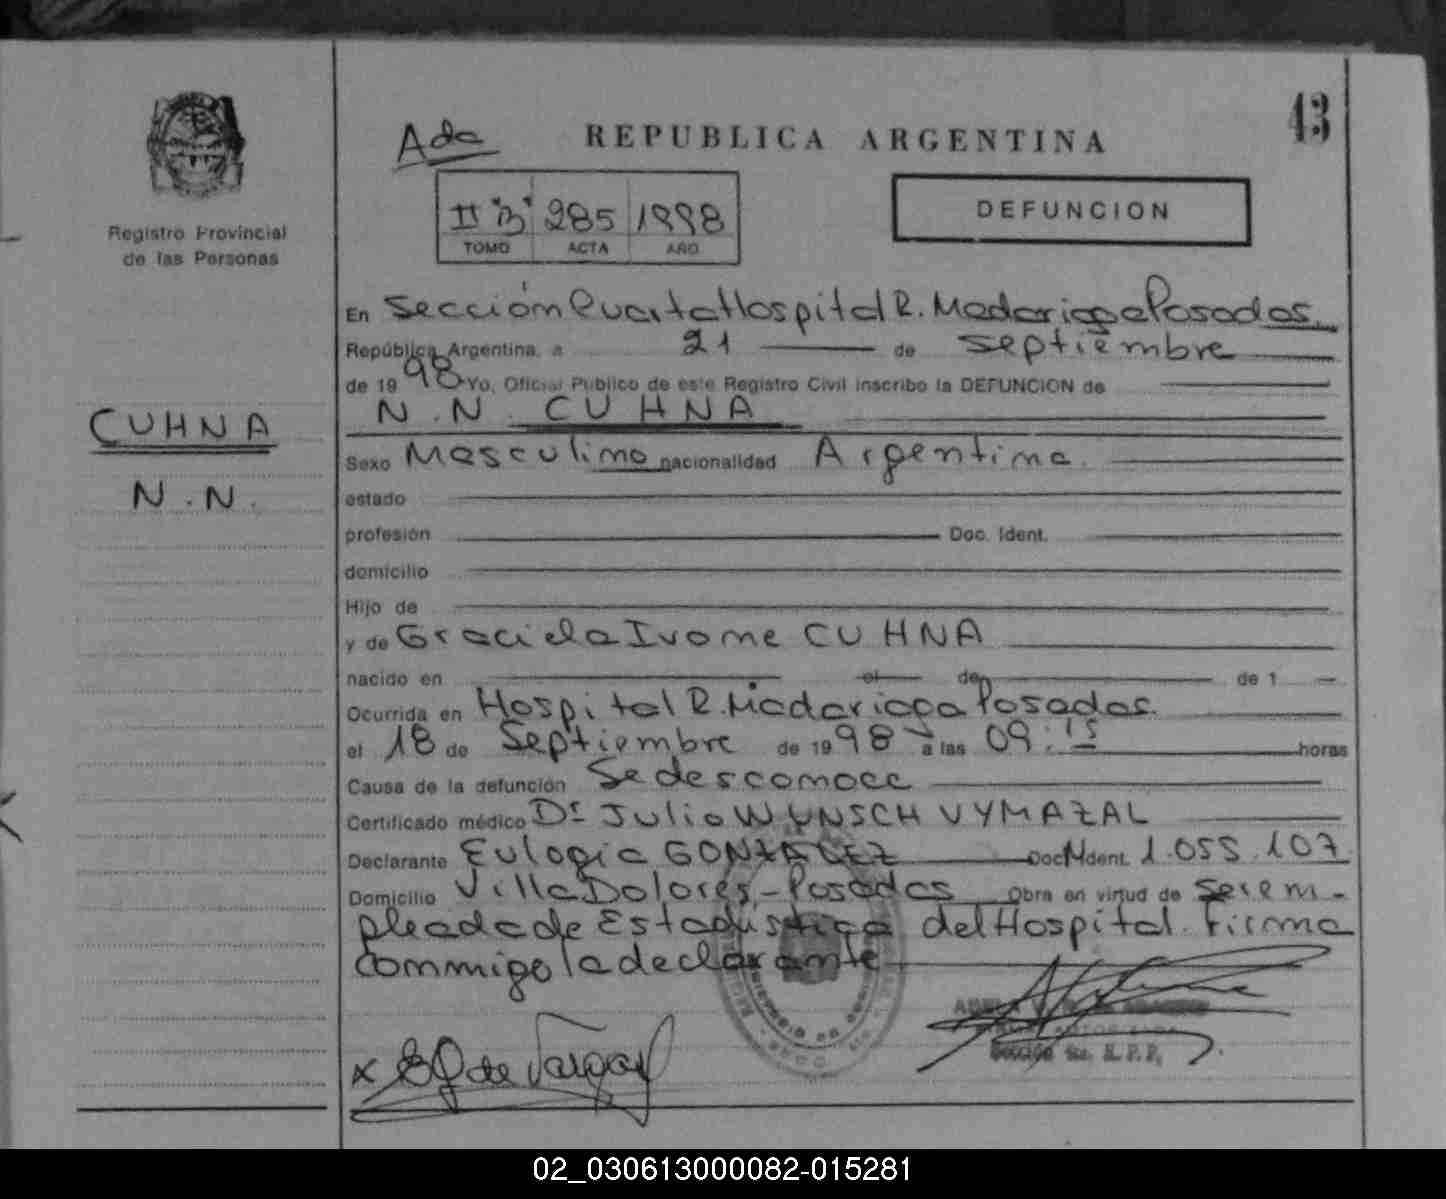 43
Ada
REPUBLICA ARGENTINA
II "B" 285 1998
TOMO ACTA AÑO
DEFUNCION
Registro Provincial
de las Personas
CUHNA
N.N.
En Sección Cuarta Hospital R. Madariaga Posadas.
República Argentina, a 21 de Septiembre
de 1998 Yo, Oficial Público de este Registro Civil inscribo la DEFUNCION de
N.N. CUHNA
Sexo Masculino nacionalidad Argentina.
estado
profesión Doc. Ident.
domicilio
Hijo de
y de Graciela Ivone CUHNA
nacido en el de de 1
Ocurrida en Hospital R. Madariaga Posadas.
el 18 de Septiembre de 1998 a las 09:15 horas
Causa de la defunción Se desconoce
Certificado médico Dr. Julio WUNSCH VYMAZAL
Declarante Eulogia GONZALEZ Doc. Ident. 1.055.107
Domicilio Villa Dolores - Posadas Obra en virtud de ser em-
pleada de Estadistica del Hospital. Firma
conmigo la declarante
x EG de Vargas
Sección 4ta. R.P.P.
02_030613000082-015281